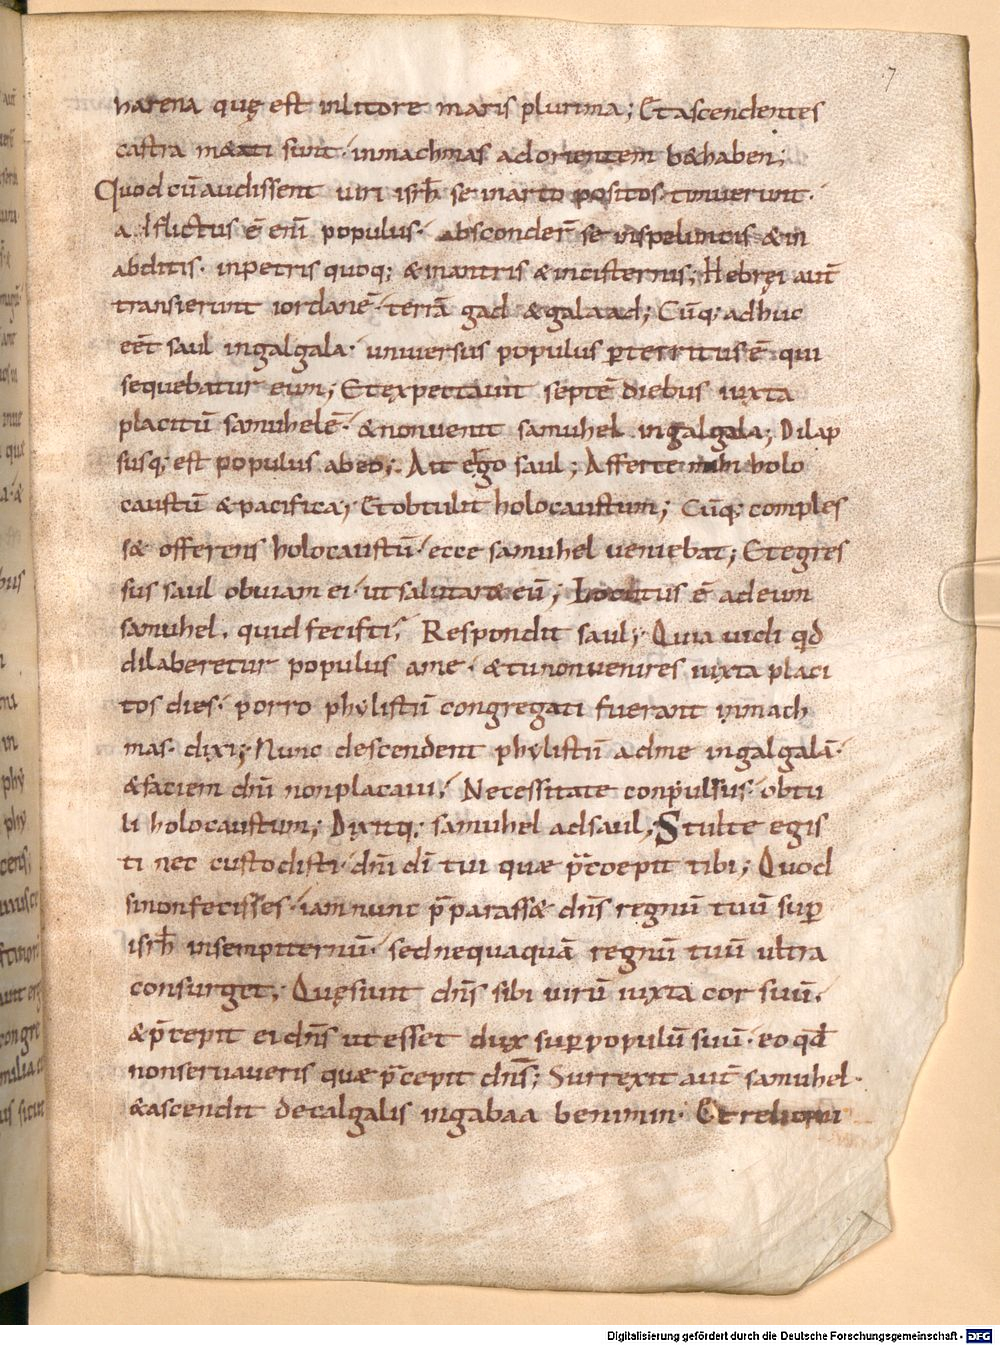 7
harena quę est inlitore maris plurima; Et ascendentes
castra m&ati sunt· inmachmas adorientem b&haben;
Quod cū audissent uiri isrl̄ se in arto positos· timuerunt·
adflictus ē eni̅ populus· absconder̄ se inspeluncis &in
abditis· inpetris quoq; &inantris &incisternis; Hebręi aut̄
transierunt iordanē· terrā gad &galaad; Cūq; adhuc
eēt saul ingalgala· uniuersus populus ꝑterritus ē qui
sequebatur eum; Et expectauit septē diebus iuxta
placitū samuhelē· &nonuenit samuhel ingalgala; Dilap
susq; est populus abeo; Ait ergo saul; Afferte mihi holo
caustū &pacifica; Et obtulit holocaustum; Cūq; comples
s& offerens holocaustū· ecce samuhel ueniebat; Et egres
sus saul obuiam ei· ut salutar& eū; Locutus ē adeum
samuhel. quid fecisti; Respondit saul; Quia uidi qd̄
dilaberetur populus ame· &tunonuenires iuxta placi
tos dies· porro phylistii̅ congregati fuerant inmach
mas· dixi; Nunc descendent phylistii̅ adme ingalgalā·
&faciem dn̄i nonplacaui; Necessitate conpulsus· obtu
li holocaustum; Dixitq; samuhel adsaul; Stulte egis
ti nec custodisti· dn̄i dī tui quae p̄coepit tibi; Quod
sinonfecisses· iam nunc p̄parass& dn̄s regnū tuū suꝑ
isrl̄ insempiternū· sednequaquā regnū tuū ultra
consurget; Quęsiuit dn̄s sibi uirū iuxta cor suū.
&p̄cepit ei dn̄s ut esset dux suꝑ populū suū· eo qd̄
nonseruaueris quae p̄cepit dn̄s; Surrexit aut̄ samuhel·
&ascendit decalgalis ingabaa benimin· Et reliqui
Digitalisierung gefördert durch die Deutsche Forschungsgemeinschaft - DFG